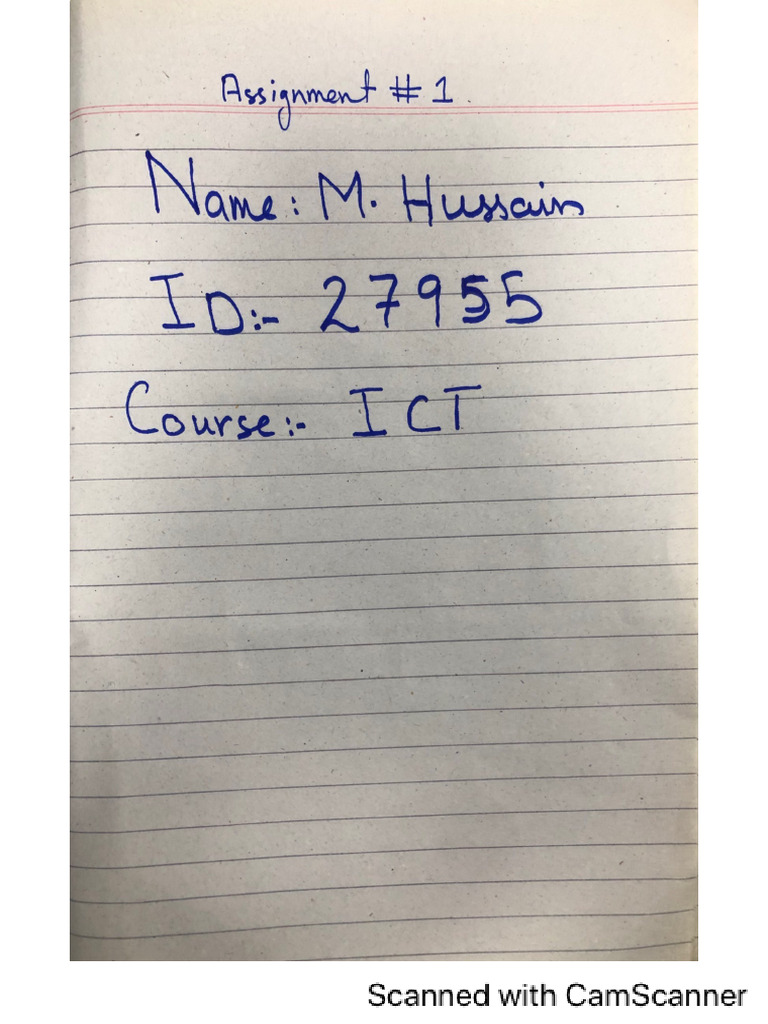 Assignment # 1
Name: M. Hussain
ID:- 27955
Course:- ICT
Scanned with CamScanner